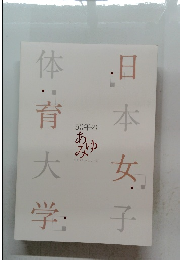 日本女子
体育大学
50年の
あゆみ